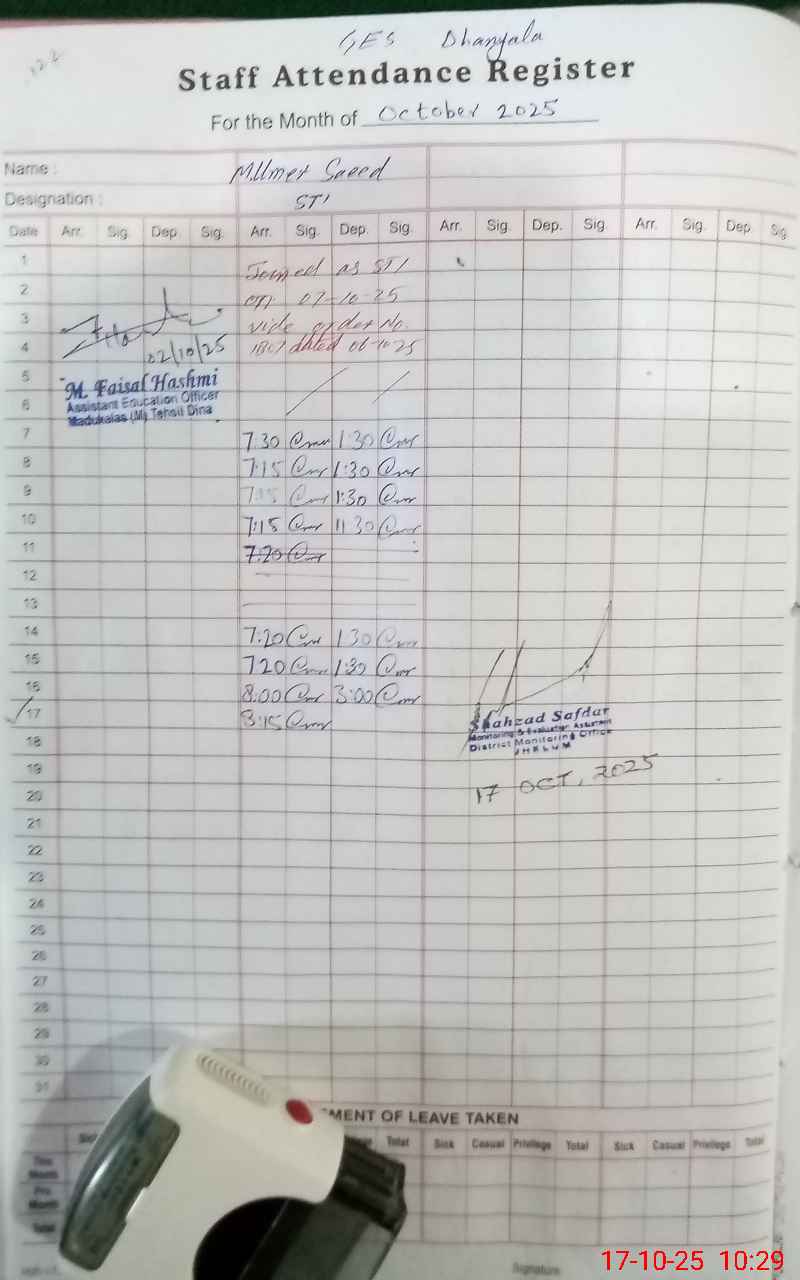 GES Dhanyala
Staff Attendance Register
For the Month of October 2025
Name : M.Umer Saeed
Designation : STI
Date Arr. Sig. Dep. Sig. Arr. Sig. Dep. Sig. Arr. Sig. Dep. Sig Arr. Sig. Dep. Sig
1 Joined as STI
2 on 07-10-25
3 vide order No.
4 1807 dated 06-10-25
02/10/25
M. Faisal Hashmi
Assistant Education Officer
Madukalas (M) Tehsil Dina
5
6
7 7:30 1:30
8 7:15 1:30
9 7:15 1:30
10 7:15 1:30
11 7:20
12
13
14 7:20 1:30
15 7:20 1:30
16 8:00 3:00
17 8:15
18
Shahzad Safdar
Monitoring & Evaluation Assistant
District Monitoring Office
JHELUM
17 OCT, 2025
19
20
21
22
23
24
25
26
27
28
29
30
31
MENT OF LEAVE TAKEN
Sick Total Sick Casual Privilege Total Sick Casual Privilege Total
This Month
Pre Month
Total
Signature
17-10-25 10:29